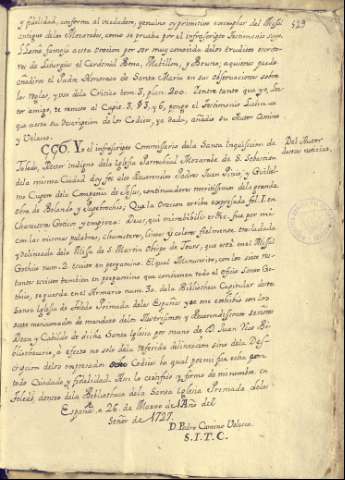 y fidelidad, conforme al verdadero, genuino y primitivo exemplar del Missal
antiguo de los Mozarabes, como se prueba por el infrascripto Testamonio suyo.
esta oracion por ser muy conocida de los eruditos escrito-
res de Liturgia el Cardenal Bona, Mabillon, y Baluzio; a quienes puede
añadirse el Padre de Santa Maria en sus observaciones sobre
las reglas, y uso dela Critica tom. 3, plan. 200. Entre tanto que yo, Lec-
tor amigo, te remito al Capit. 3, §3, y 6, pongo el Testimonio Latino en
que acota su Descripcion de los Codices, ya dado, añade su Autor Camino
y Velasco.
529
CC6. Yo el infrascripto Commissario dela Santa Inquisicion de
Toledo, Rector indigno dela Iglesia Parrochial Mozarabe de S. Sebastian
dela misma Ciudad doy fee alos Reverendos Padres Juan Pinio, y Guiliel-
mo Cupero dela Compania de Jesus, continuadores dela grande
obra de Bolando y Papebrochio; Que la Oracion arriba expressada fol. 1. en
Characteres Gothicos y empieza: Deus, qui mirabilibus etc. fue por mi
con las mismas palabras, characteres, lineas y colores fielmente trasladada
y delineada dela Missa de S. Martin Obispo de Tours, que está en el Missal
Gothico num. 2. escrito en pergamino. El qual Manuscrito, con los siete res-
tantes escritos tambien en pergamino que contienen todo el oficio Santo Go-
thico, se guarda en el Armario num. 30. dela Bibliotheca Capitular desta
Santa Iglesia de Toledo Primada delas Españas y se me exhibió con los
siete mencionados de mandato delos Illustrissimos y Reverendissimos Señores
Dean y Cabildo de dicha Santa Iglesia por mano de D. Juan Bi-
bliothecario, a efecto no solo dela referida delineacion sino dela Des-
cripcion delos expressados ocho Codices la qual por mi fue echa con
todo Cuidado y fidelidad. Assi lo certifico y firmo de mi nombre, en
Toledo, dentro dela Bibliotheca dela Santa Iglesia Primada delas
Españas, a 26 de Marzo de l'Año del
Señor de 1727.
D. Pedro Camino Velasco.
S. I. T. C.
Del Autor
destas noticias.